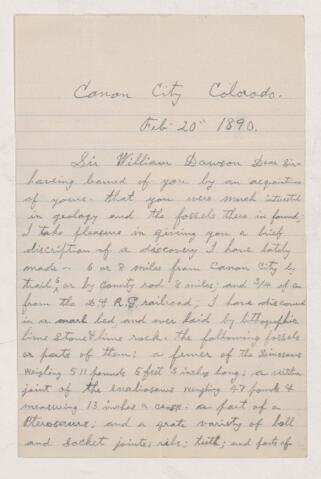 Canon City Colorado.
Feb 20" 1890.
Sir William Dawson Dear Sir-
haveing larned of you by an acquaintence
of yours that you were much intrested
in geology and the fossels there in found;
I take pleasure in giveing you a brief
discription of a discovery I have lately
made - 6 or 8 miles from Canon City by
trail, or by county rod 8 miles; and 3/4 of a
from the D & R.G. railroad, I have discovered
in a marl bed, and over laid by lithographic
lime stone & lime rock. the following fossels
or parts of them; a femer of the Dinosaur
weighing 511 pounds 5 feet 3 inches long; a
joint of the weighing 47 pounds &
measureing 13 inches a cross; a part of a
Pterosaurs; and a grate variety of ball
and socket joints, ribs; teeth; and parts of